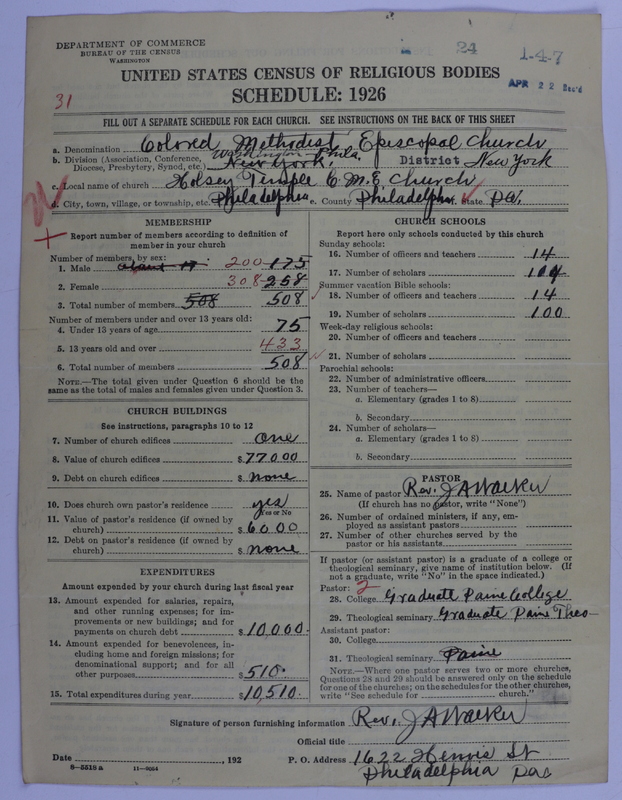 DEPARTMENT OF COMMERCE
BUREAU OF THE CENSUS
WASHINGTON
24
1-4-7
APR 22 Rec'd
UNITED STATES CENSUS OF RELIGIOUS BODIES
SCHEDULE: 1926
31
FILL OUT A SEPARATE SCHEDULE FOR EACH CHURCH. SEE INSTRUCTIONS ON THE BACK OF THIS SHEET
a. Denomination Colored Methodist Episcopal Church
Washington-Phila.
b. Division (Association, Conference, Diocese, Presbytery, Synod, etc.) New York, District New York
c. Local name of church Holsey Temple C. M. E Church
d. City, town, village, or township, etc. Philadelphia e. County Philadelphia f. State Pa.
MEMBERSHIP
Report number of members according to definition of
member in your church
Number of members, by sex:
1. Male 200 175
2. Female 308 258
3. Total number of members 508 508
Number of members under and over 13 years old:
4. Under 13 years of age 75
5. 13 years old and over 433
6. Total number of members 508
NOTE.—The total given under Question 6 should be the
same as the total of males and females given under Question 3.
CHURCH BUILDINGS
See instructions, paragraphs 10 to 12
7. Number of church edifices one
8. Value of church edifices $ 77000
9. Debt on church edifices $ none
10. Does church own pastor's residence yes
Yes or No
11. Value of pastor's residence (if owned by
church) $ 6000
12. Debt on pastor's residence (if owned by
church) $ none
EXPENDITURES
Amount expended by your church during last fiscal year
13. Amount expended for salaries, repairs,
and other running expenses; for im-
provements or new buildings; and for
payments on church debt $ 10,000.
14. Amount expended for benevolences, in-
cluding home and foreign missions; for
denominational support; and for all
other purposes $ 510.
15. Total expenditures during year $ 10,510.
CHURCH SCHOOLS
Report here only schools conducted by this church
Sunday schools:
16. Number of officers and teachers 14
17. Number of scholars 104
Summer vacation Bible schools:
18. Number of officers and teachers 14
19. Number of scholars 100
Week-day religious schools:
20. Number of officers and teachers
21. Number of scholars
Parochial schools:
22. Number of administrative officers
23. Number of teachers—
a. Elementary (grades 1 to 8)
b. Secondary
24. Number of scholars—
a. Elementary (grades 1 to 8)
b. Secondary
PASTOR
25. Name of pastor Rev. J A Walker
(If church has no pastor, write "None")
26. Number of ordained ministers, if any, em-
ployed as assistant pastors
27. Number of other churches served by the
pastor or his assistants
If pastor (or assistant pastor) is a graduate of a college or
theological seminary, give name of institution below. (If
not a graduate, write "No" in the space indicated.)
Pastor: 2
28. College Graduate Paine College
29. Theological seminary Graduate Paine Theo-
Assistant pastor:
30. College
31. Theological seminary Paine
NOTE.—Where one pastor serves two or more churches,
Questions 28 and 29 should be answered only on the schedule
for one of the churches; on the schedules for the other churches,
write "See schedule for church."
Signature of person furnishing information Rev. J A Walker
Official title
Date , 192 P. O. Address 1622 St
Philadelphia Pa
8-5518 a 11-9054